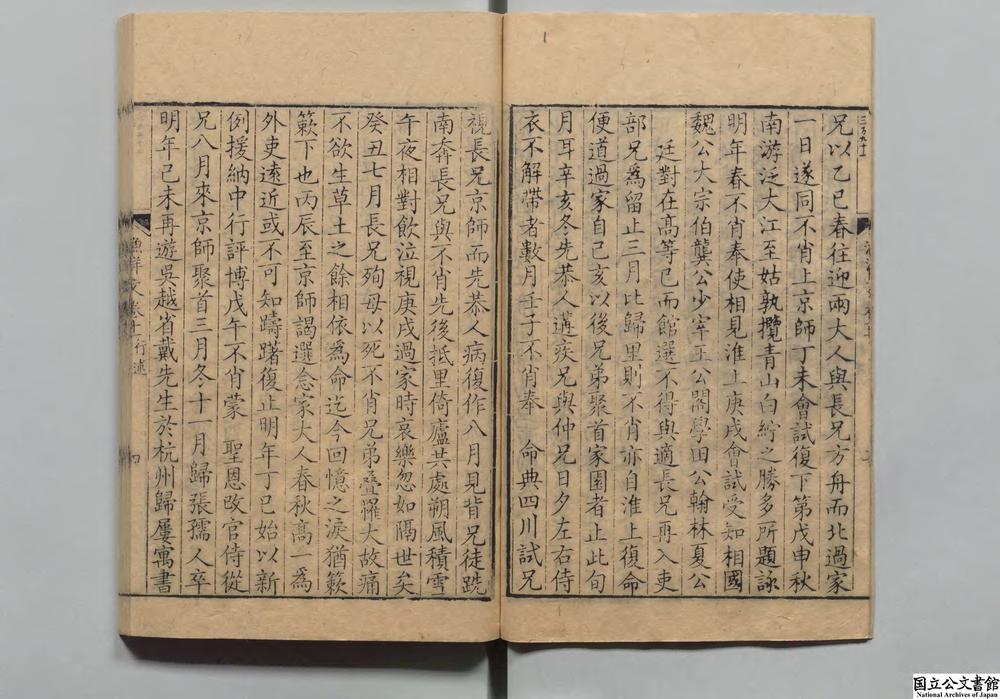 兄以乙巳春往迎兩大人與長兄方舟而北過家
一日遂同不肖上京師丁未會試復下第戊申秋
南游泛大江至姑孰攬青山白紵之勝多所題詠
明年春不肖奉使相見淮上庚戌會試受知相國
魏公大宗伯龔公少宰王公閣學田公翰林夏公
廷對在高等已而館選不得與適長兄再入吏
部兄為留止三月比歸里則不肖亦自淮上復命
便道過家自己亥以後兄弟聚首家園者止此旬
月耳辛亥冬先恭人遘疾兄與仲兄日夕左右侍
衣不解帶者數月壬子不肖奉 命典四川試兄
視長兄京師而先恭人病復作八月見背兄徒跣
南奔長兄與不肖先後抵里倚廬共處朔風積雪
午夜相對飲泣視庚戌過家時哀樂忽如隔世矣
癸丑七月長兄殉母以死不肖兄弟疊罹大故痛
不欲生草土之餘相依為命迄今回憶之淚猶簌
簌下也丙辰至京師謁選念家大人春秋高一為
外吏遠近或不可知躊躇復止明年丁巳始以新
例援納中行評博戊午不肖蒙 聖恩改官侍從
兄八月來京師聚首三月冬十一月歸張孺人卒
明年己未再遊吳越省戴先生於杭州歸屢寓書
漁洋文 卷十 行述
四
国立公文書館
National Archives of Japan